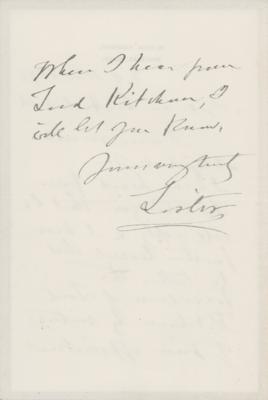 When I hear from
Lord Kitchener, I
will let you know.
Yours very truly
Lister